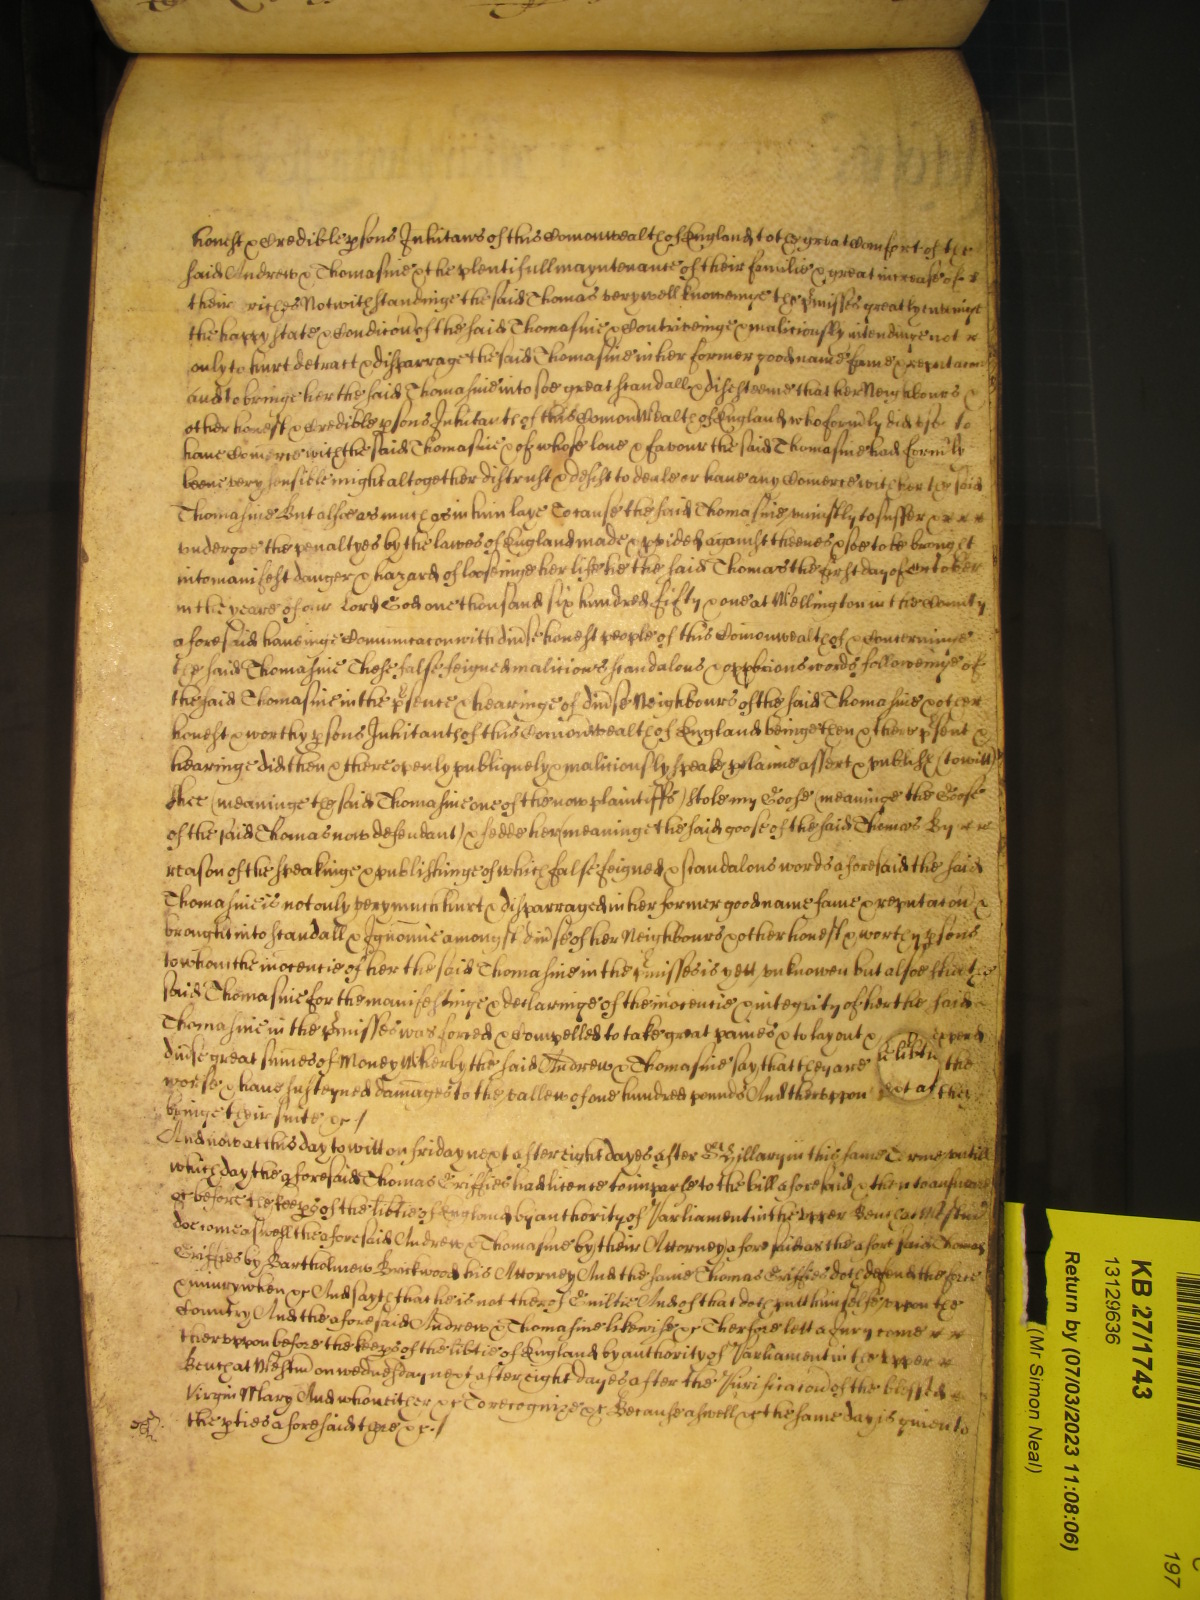 honest & Credible psons Inhitants of this Comonwealth of England to the great Comfort of the
said Andrew & Thomasine & the plentifull mayntenance of their familie & great increase of
their riches Notwithstandinge the said Thomas very well knoweinge the pmisses greatly envyinge
the happy state & Condicon of the said Thomasine & Contriveinge & maliciously intendinge not
only to hurt detract & disparrage the said Thomasine in her former good name fame & reputacon
and to bringe her the said Thomasine into soe great scandall & disesteeme that her Neighbours &
other honest & Credible psons Inhitants of this Comonwealth of England who formly did use to
have Comerce with the said Thomasine & of whose love & favour the said Thomasine had formly
beene very sensible might altogether distrust & desist to deale or have any Comerce with her the said
Thomasine But alsoe as much as in him laye To cause the said Thomasine uniustly to suffer &
undergoe the penaltyes by the lawes of England made & pvided against theeves & soe to be brought
into manifest danger & hazard of looseinge her life he the said Thomas the first day of October
in the yeare of our Lord God one thousand six hundred fifty & one at Wellington in the County
aforesaid haveinge Comunicacon with divse honest people of this Comonwealth of & Concerninge
the said Thomasine These false feigned malicious scandalous & opprbrious words followeinge of
the said Thomasine in the psence & hearinge of divse Neighbours of the said Thomasine & other
honest & worthy psons Inhitants of this Comonwealth of England beinge then & there psent &
hearinge did then & there openly publiquely & maliciously speake pclaime assert & publish (to witt)
Shee (meaninge the said Thomasine one of the now plaintiffs) stole my Goose (meaninge the Goose
of the said Thomas now defendant) & sedde her (meaninge the said goose of the said Thomas By
reason of the speakinge & publishinge of which false feigned & scandalous words aforesaid the said
Thomasine is not only very much hurt & disparraged in her former good name fame & reputacon &
brought into scandall & Ignomie amongst divse of her Neighbours & other honest & worthy psons
to whom the inocencie of her the said Thomasine in the pmisses is yett unknowen but alsoe that the
said Thomasine for the manifestinge & declaringe of the inocencie & integrity of her the said
Thomasine in the pmisses was forced & Compelled to take great paines & to layout & expend
divse great sumes of Money Wherby the said Andrew & Thomasine say that they are the
worse & have susteyned damages to the vallew of one hundred pounds And therupon they
bringe their suite &c /
And now at this day to witt on friday next after eight dayes after St Hillary in this same Terme untill
which day the aforesaid Thomas Griffies had licence to imparle to the bill aforesaid & then to answeare
&c before the keeps of the libtie of England by authority of Parliament in the upper Bench at Westm
doe come aswell the aforesaid Andrew & Thomasine by their Attorney aforesaid as the aforesaid Thomas
Griffies by Bartholmew Brickwood his Attorney And the same Thomas Griffies doth defend the force
& iniury when &c And sayth that he is not therof Guiltie And of that doth putt himselfe uppon the
Country And the aforesaid Andrew & Thomasine likewise &c Therfore lett a Jury come
theruppon before the keeps of the libtie of England by authority of Parliament in the upper
Bench at Westm on wednesday next after eight dayes after the Purificacon of the blessed
Virgin Mary And who neither &c To recognize &c Because aswell &c the same day is given to
the pties aforesaid there &c /
KB 27/1743
13129636
Return by (07/03/2023 11:08:06)
(Mr Simon Neal)
197